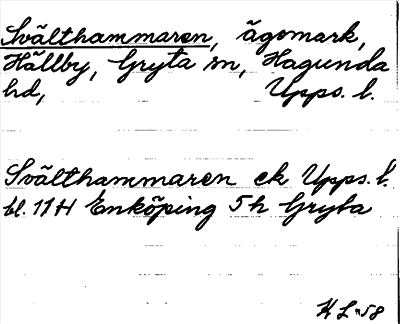 Svälthammaren, ägomark,
Hällby, Gryta sn, Hagunda
hd, Upps. l.
Svälthammaren ek Upps. l.
bl. 11H Enköping 5h Gryta
KL -58